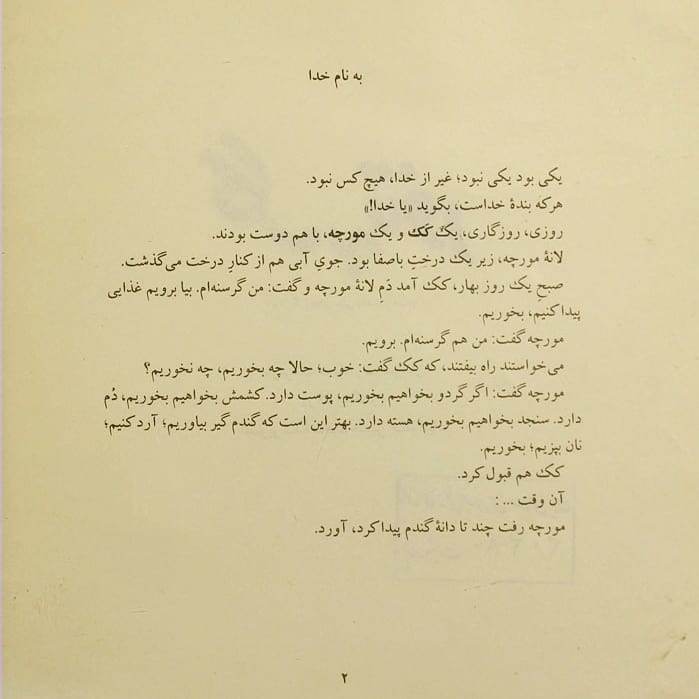 به نام خدا
یکی بود یکی نبود؛ غیر از خدا، هیچ کس نبود.
هرکه بندهٔ خداست، بگوید «یا خدا!»
روزی، روزگاری، یک کَک و یک مورچه، با هم دوست بودند.
لانهٔ مورچه، زیر یک درختِ باصفا بود. جویِ آبی هم از کنارِ درخت می‌گذشت.
صبحِ یک روز بهار، کک آمد دَمِ لانهٔ مورچه و گفت: من گرسنه‌ام. بیا برویم غذایی
پیدا کنیم، بخوریم.
مورچه گفت: من هم گرسنه‌ام. برویم.
می‌خواستند راه بیفتند، که کک گفت: خوب؛ حالا چه بخوریم، چه نخوریم؟
مورچه گفت: اگر گردو بخواهیم بخوریم، پوست دارد. کشمش بخواهیم بخوریم، دُم
دارد. سنجد بخواهیم بخوریم، هسته دارد. بهتر این است که گندم گیر بیاوریم؛ آرد کنیم؛
نان بپزیم؛ بخوریم.
کک هم قبول کرد.
آن وقت ... :
مورچه رفت چند تا دانهٔ گندم پیدا کرد، آورد.
۲